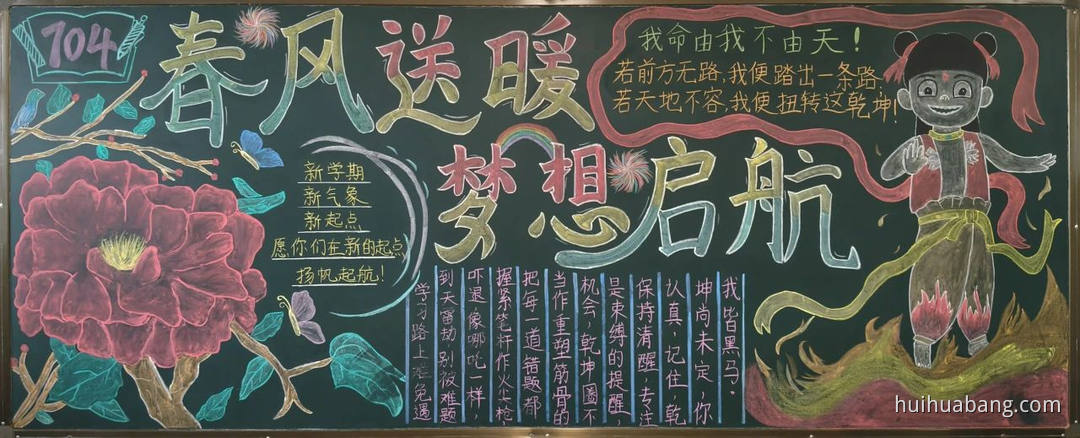 104
春风送暖
梦想启航
我命由我不由天!
若前方无路,我便踏出一条路;
若天地不容,我便扭转这乾坤!
新学期
新气象
新起点
愿你们在新的起点
扬帆起航!
学习路上难免遇
到天雷劫别被难题
吓退,像哪吒一样,
握紧笔杆作火尖枪,
把每一道错题都
当作重塑筋骨的
机会,乾坤圈不
是束缚的提醒,
保持清醒,专注
认真,记住,乾
坤尚未定,你
我皆黑马。
huihuabang.com